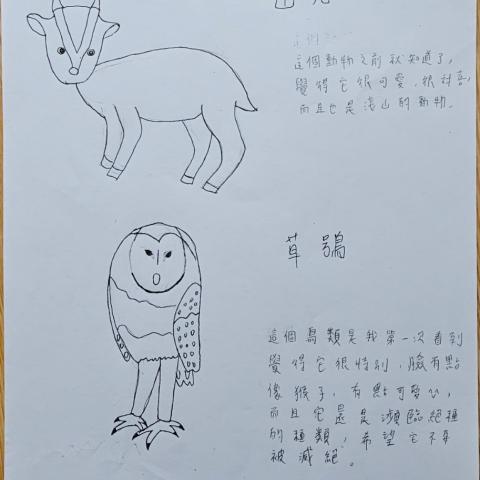 這個動物之前就知道了,
覺得它很可愛,很討喜,
而且也是淺山的動物。
草鴞
這個鳥類是我第一次看到
覺得它很特別,臉有點
像猴子,有點可愛,
而且它還是瀕臨絕種
的種類,希望它不再
被滅絕。